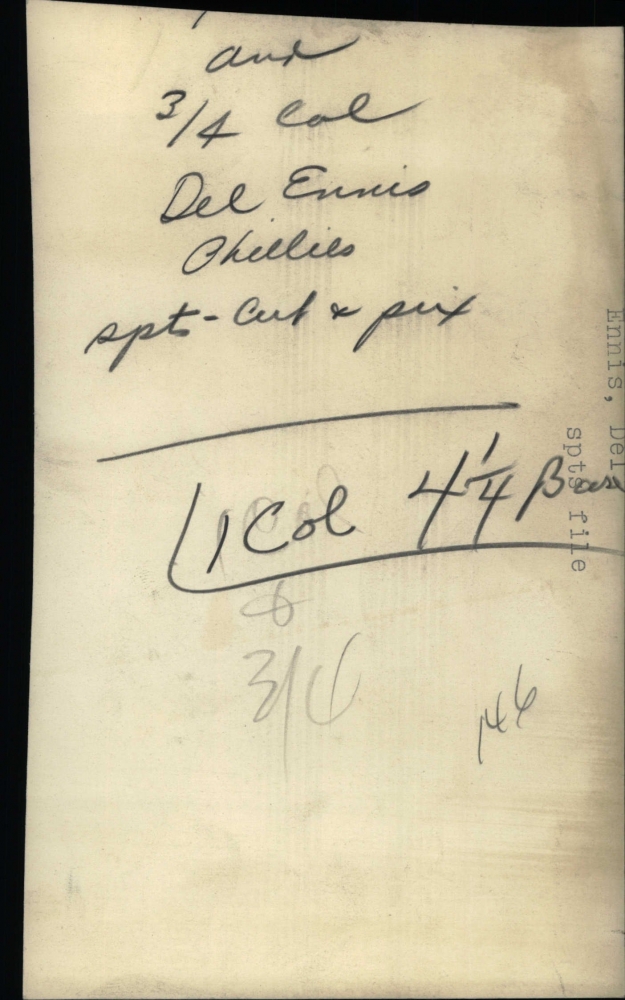 and
3/4 Col
Del Ennis
Phillies
spts - Cut & pix
1 Col 4 1/4 Base
&
3/4
146
Ennis, Del
spts file